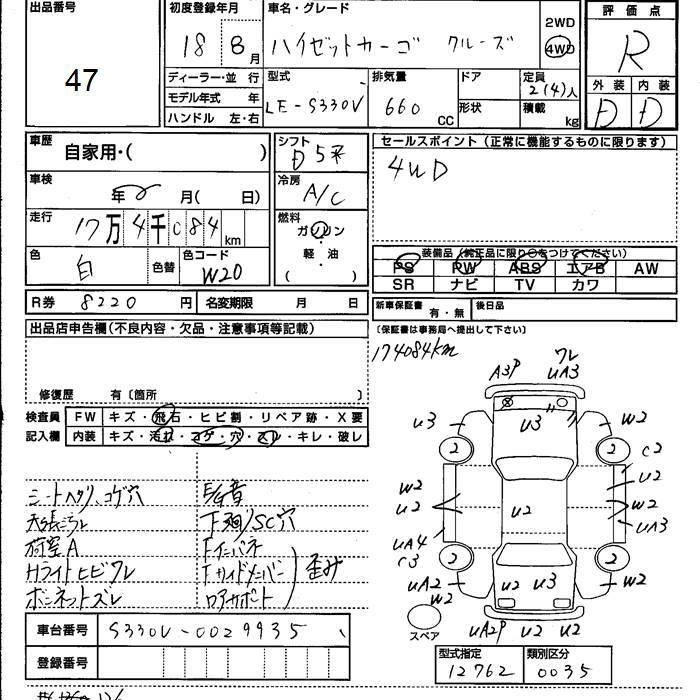 出品番号
47
初度登録年月
18 8月
車名・グレード
ハイゼットカーゴ クルーズ
2WD
4WD
評価点
R
外装 内装
D D
ディーラー・並行
モデル年式 年
ハンドル 左・右
型式
LE-S330V
排気量
660 CC
ドア
形状
定員
2(4)人
積載
kg
車歴
自家用・( )
車検
年 月( 日)
走行
17万4千084km
色
白
色替
色コード
W20
シフト
D5
冷房
A/C
燃料
ガソリン
・
軽・油
( )
セールスポイント(正常に機能するものに限ります)
4WD
装備品(純正品に限り○をつけてください)
PS PW ABS エアB AW
SR ナビ TV カワ
R券 8220円
名変期限 月 日
新車保証書 有・無
後日品
(保証書は事務局へ提出して下さい)
出品店申告欄(不良内容・欠品・注意事項等記載)
修復歴 有〔箇所 〕
174084km
検査員
記入欄
FW キズ・飛石・ヒビ割・リペア跡・X要
内装 キズ・汚れ・コゲ・穴・スレ・キレ・破レ
シートヘタリ、コゲ穴
天張ニゴレ
荷室A
Hライトヒビワレ
ボンネットズレ
E/G音
下廻リSC穴
Fインパネ
Fサイドメンバー
ロアサポート
歪み
A3P
ワレ
UA3
U3
U3
W2
2
2
C2
U2
W2
U2
U2
W2
UA3
UA4
C3
2
2
UA2
W2
U2
U3
W2
スペア
UA2P U2 U2
車台番号 S330V-0029935
登録番号
型式指定 類別区分
12762 0035